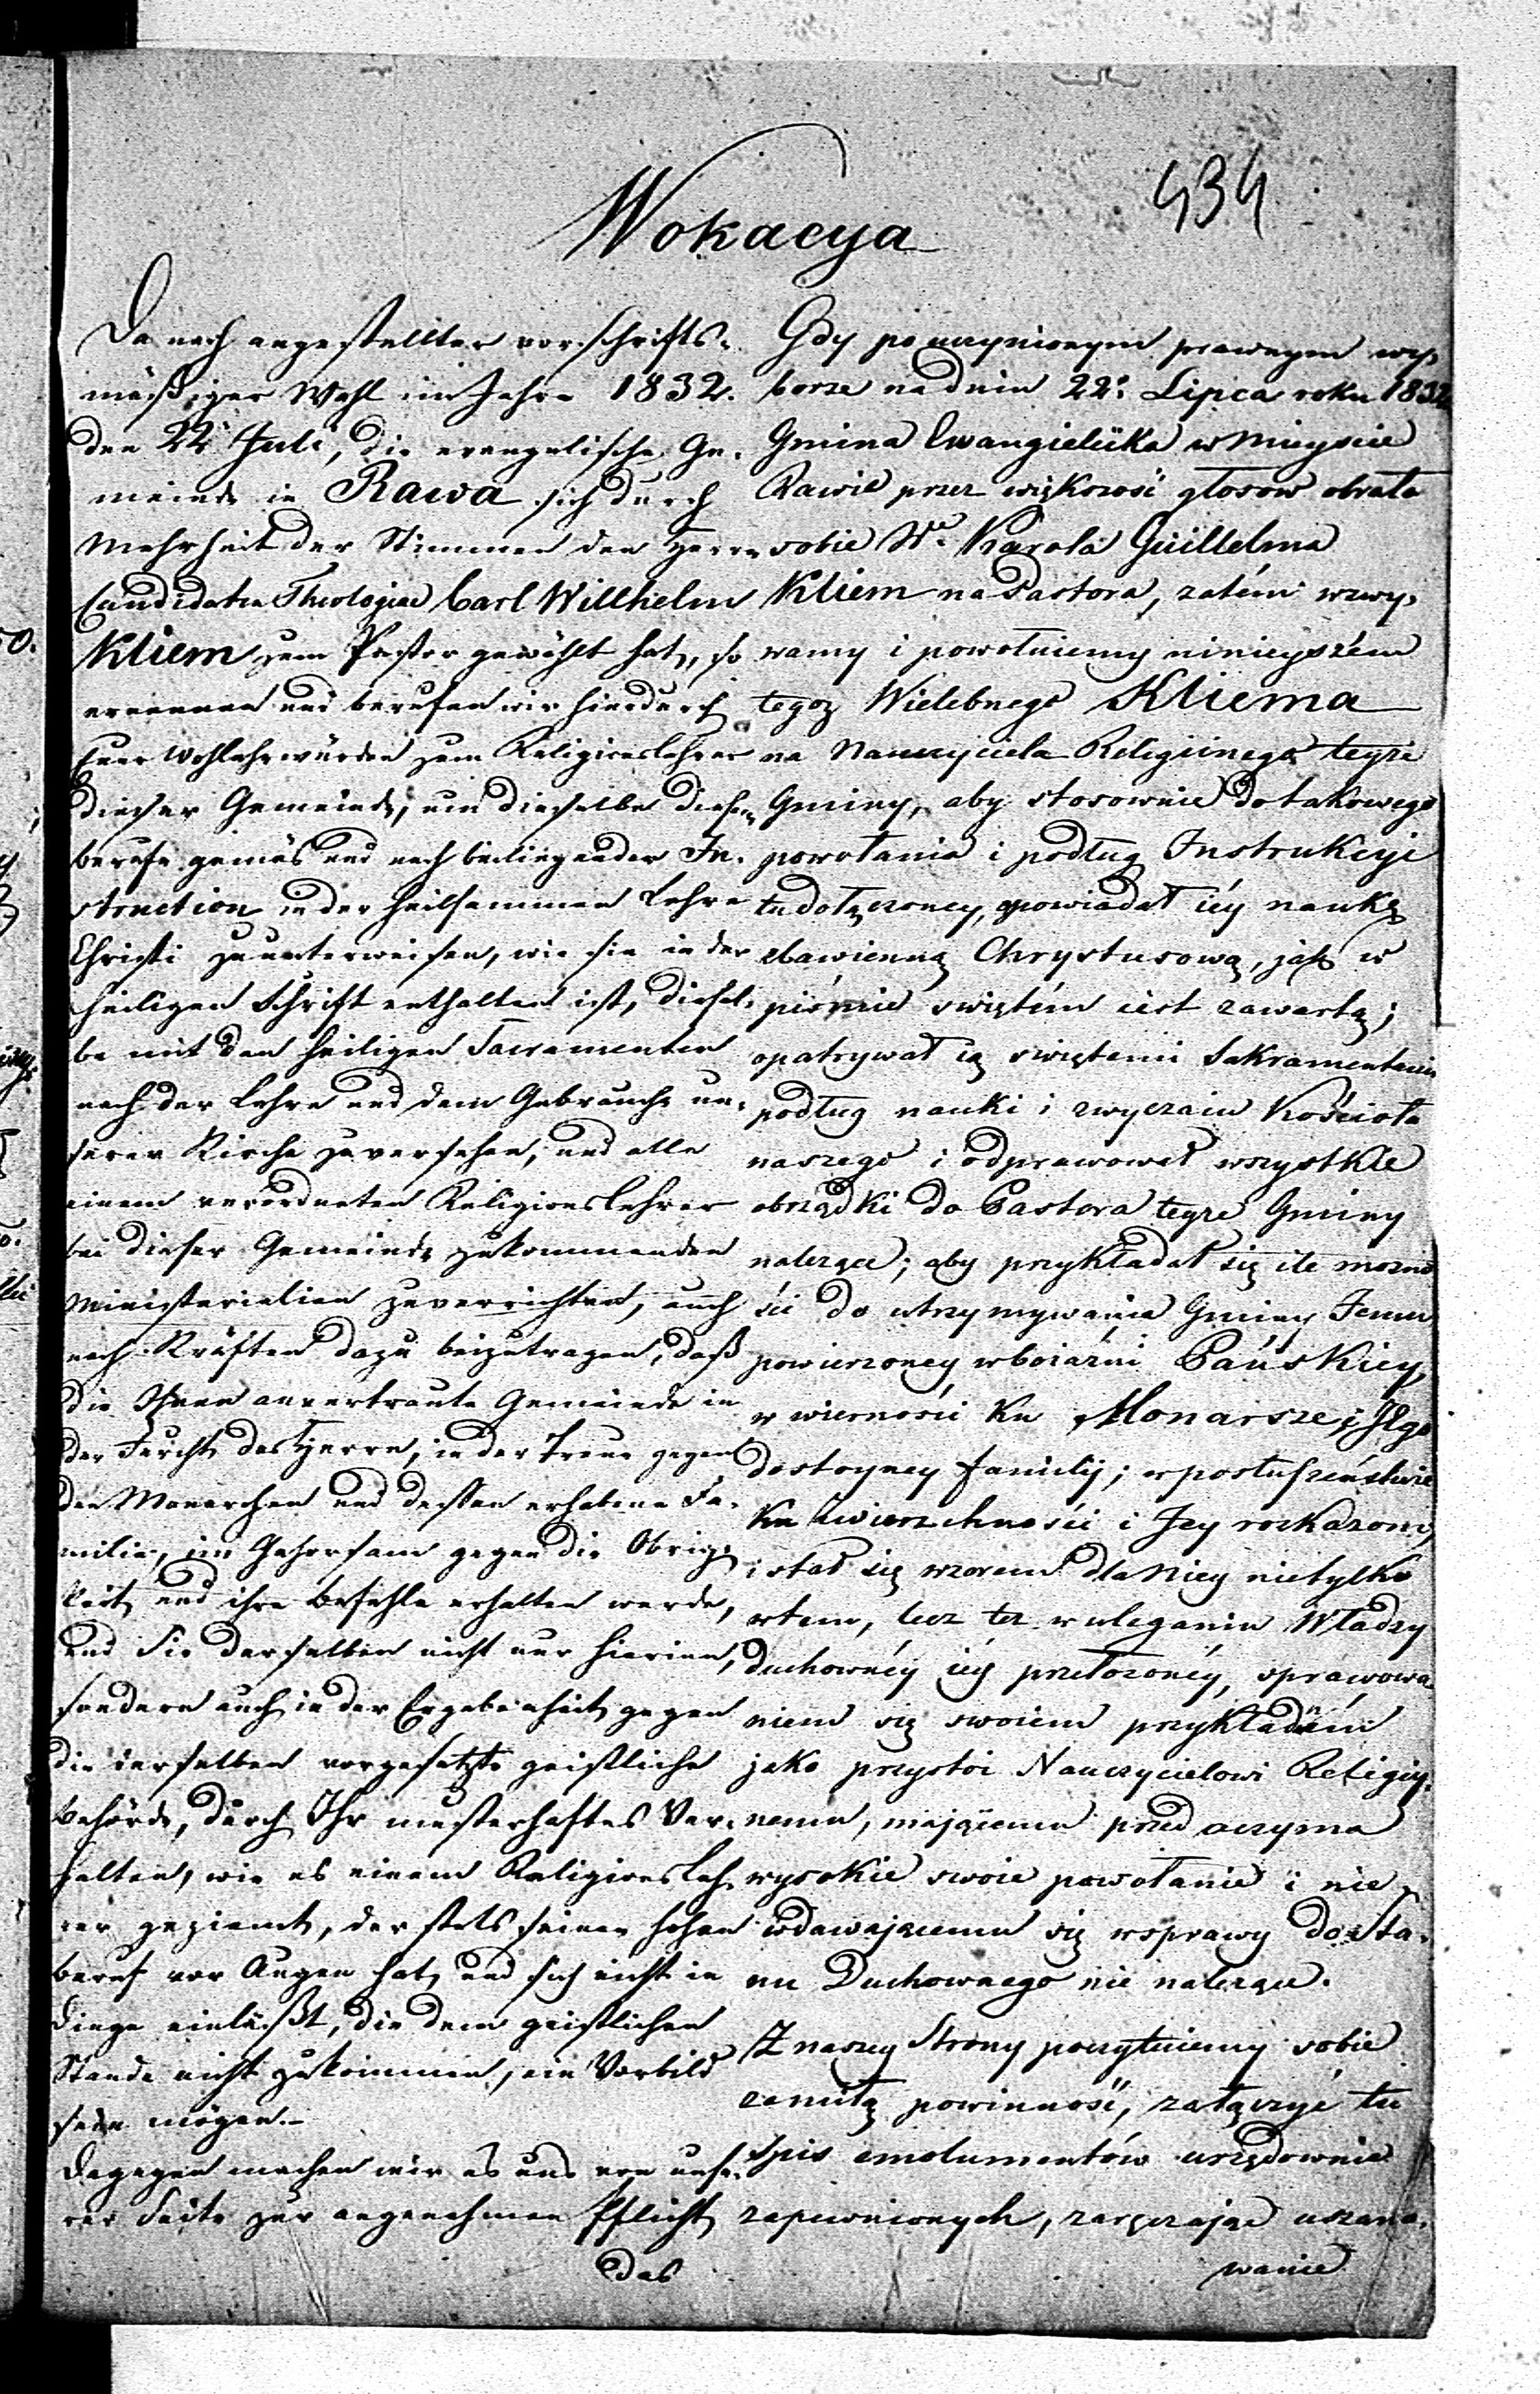 434
Wokacya
Da nach angestellter vorschrifts-
mäßiger Wahl im Jahre 1832.
den 22 Juli, die evangelische Ge-
meinde in Rawa sich durch
Mehrheit der Stimmen den Herrn
Candidaten Theologiae Carl Willhelm
Kliem zum Pastor gewählt hat, so
ernennen und berufen wir hierdurch
Euer Wohlehrwürden zum Religionslehrer
dieser Gemeinde, um dieselbe diesem
Berufe gemäs und nach beiliegender In-
struction in der heilsammen Lehre
Christi zu unterweisen, wie sie in der
heiligen Schrift enthalten ist, diesel-
be mit den heiligen Sacramenten
nach der Lehre und dem Gebrauche un-
serer Kirche zu versehen, und alle
einem verordneten Religionslehrer
bei dieser Gemeinde zukommenden
Ministerialien zu verrichten, auch
nach Kräften dazu beizutragen, daß
die Ihnen anvertraute Gemeinde in
der Furcht des Herrn, in der Treue gegen
den Monarchen und dessen erhabene Fa-
milie, im Gehorsam gegen die Obrig-
keit und ihre Befehle erhalten werde,
und Sie derselben nicht nur hierinn,
sondern auch in der Ergebenheit gegen
die derselben vorgesetzte geistliche
Behörde, durch Ihr musterhaftes Ver-
halten, wie es einem Religionsleh-
rer geziemt, der stets seinen hohen
Beruf vor Augen hat, und sich nicht in
Dinge einläßt, die dem geistlichen
Stande nicht zukommen, ein Vorbild
sein mögen.-
Dagegen machen wir es uns von unse-
rer Seite zur angenehmen Pflicht
das
Gdy po uczynionym prawnym wy-
borze na dniu 22° Lipca roku 1832
Gmina Ewangielicka w Mieyscie
Rawie przez większość głosow obrała
sobie We Karola Guillelma
Kliem na Pastora, zatém wzwy-
wamy i powołuiemy ninieyszém
tegoz Wielebnego Kliema
na Nauczyciela Religiinego teyze
Gminy, aby stosownie do takowego
powołania i podług Instrukcyi
tu dołączoney, opowiadał iéy naukę
zbawienną Chrystusową, jak w
pismie swiętém iest zawarta;
opatrywał ią swiętemi Sakramentami
podług nauki i zwyczaiu Kościoła
naszego i odprawował wszystkie
obrządki do Pastora teyze Gminy
nalezące; aby przykładał się ile mozno-
ści do utrzymywania Gminy Jemu
powierzoney w boiaźni Pańskiey,
w wierności ku Monarsze i Jego
dostoyney familij; w posłuszeństwie
ku zwierzchności i Jey rozkazom,
i stał się wzorem dla Niey nietylko
w tem, lecz tez w uleganiu Władzy
duchownéy iéy przełozonéy, sprawowa-
niem się swoiem przykładném
jako przystoi Nauczycielowi Religiy-
nemu, mającemu przed oczyma
wysokie swoie powołanie i nie
wdawającemu się w sprawy do Sta-
nu Duchownego nie nalezące.
Z naszey Strony poczytuiemy sobie
za miłą powinność, załączyć tu
Spis emolumentów urzędownie
zapewnionych, zaręczając uszano-
wanie